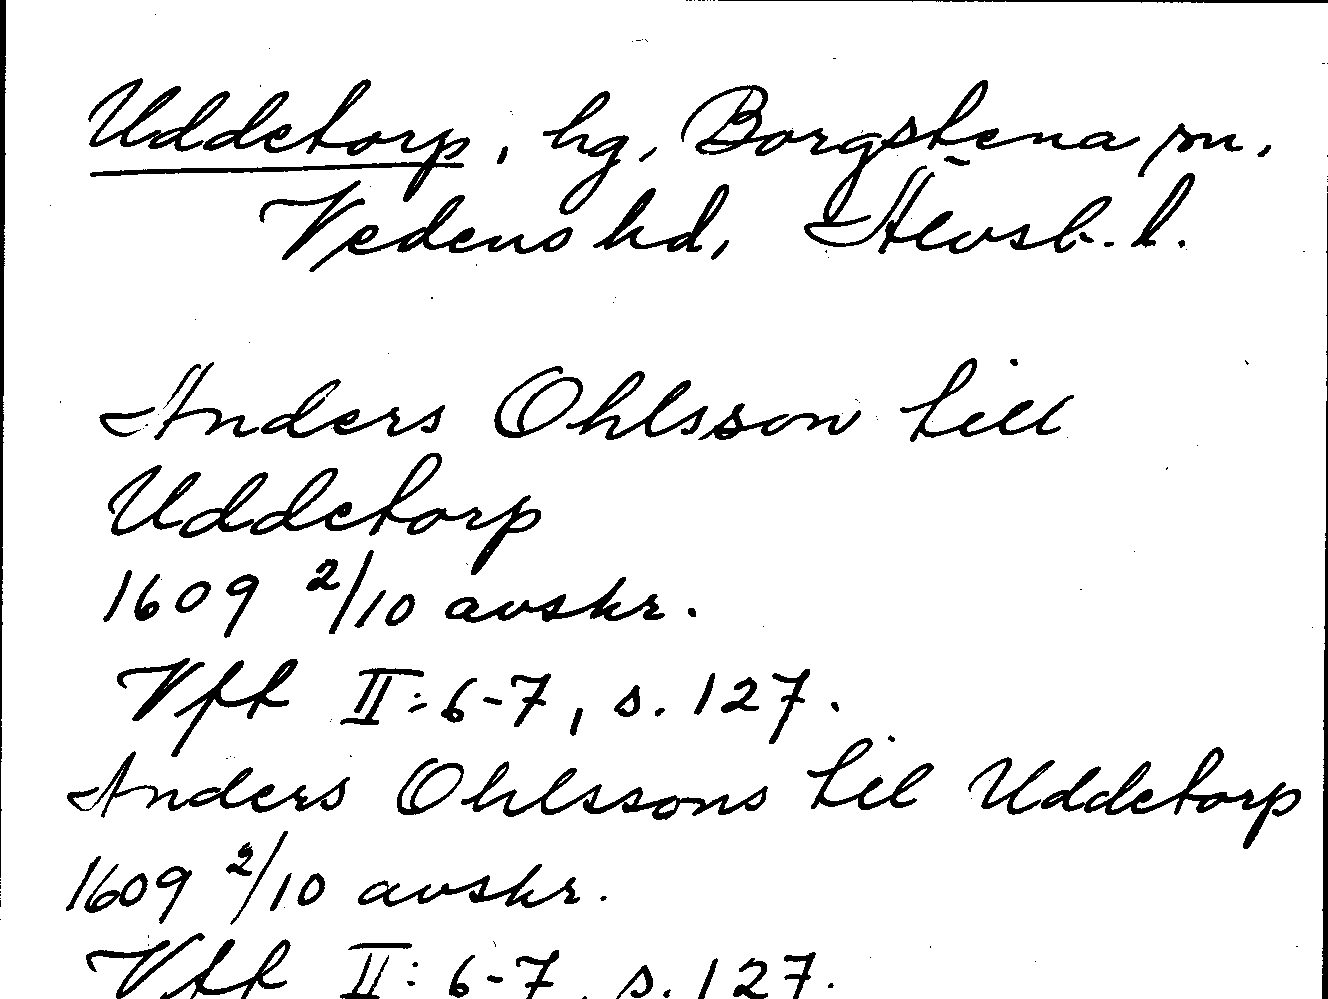 Uddetorp, hg, Borgstena sn,
Vedens hd, Älvsb. l.
Anders Ohlsson till
Uddetorp
1609 2/10 avskr.
Vft II:6-7, s. 127.
Anders Ohlssons til Uddetorp
1609 2/10 avskr.
Vft II: 6-7, s. 127.